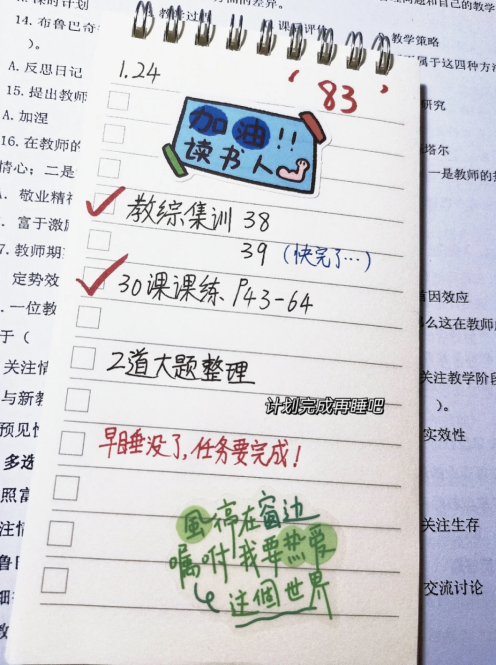 1.24
‘83’
加油!!
读书人
教综集训 38
39 (快完了…)
30课课练 P43-64
2道大题整理
计划完成再睡吧
早睡没了,任务要完成!
風停在窗边
嘱咐我要热爱
这個世界
14.布鲁巴奇
)。
A.反思日记
15.提出教师
A.加涅
16.在教师的
情心;二是
敬业精神
富于激励
7.教师期
定势效
.一位教
于(
关注情
与新教
预见性
多选
照富
注情
教学策略
属于这四种方法
研究
塔尔
一是教师的
因效应
么这在教师
关注教学阶段
)。
实效性
关注生存
交流讨论